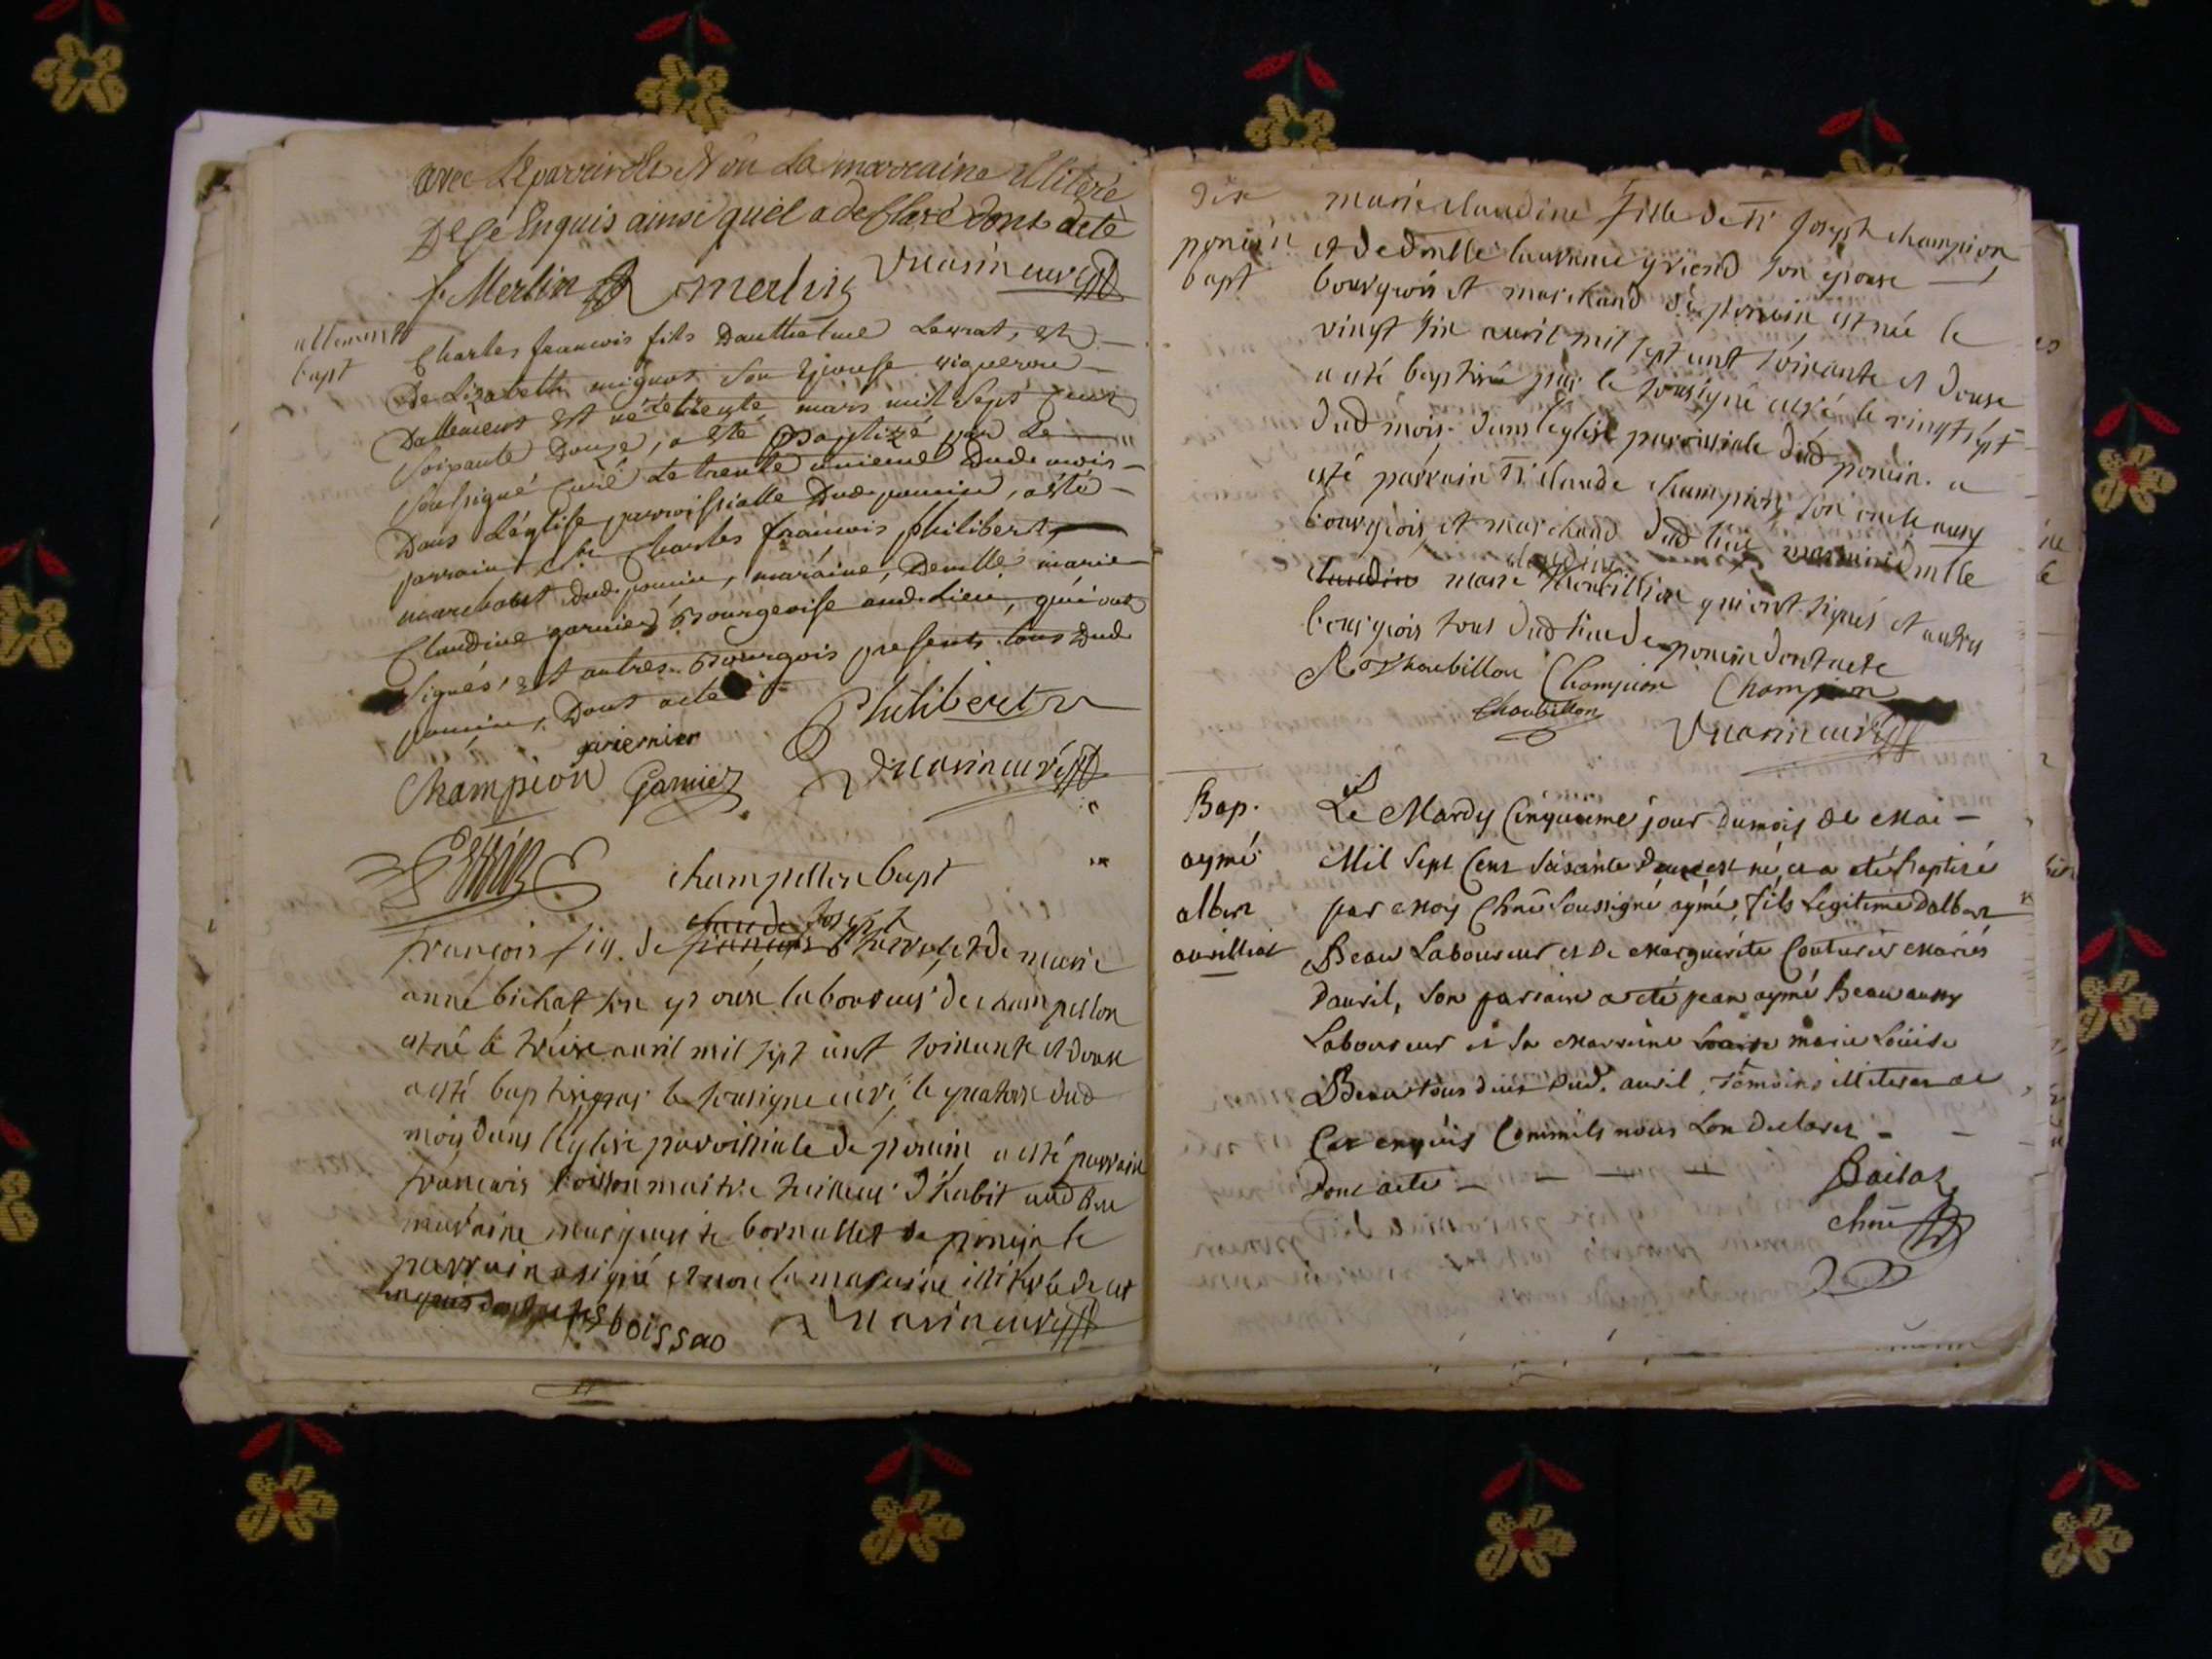 avec Le parrin & Non La marraine illiterée
De Ce Enquis ainsi quel a desClaré dont acte
f. Merlin merlin curé
allement
bapt
Charles francois fils Danthelme Levrat, est
De Lizabeth mignot son Epouse vigneron
Dallement est né le trente mars mil sept Cent
soixante Douze, a este Baptizé par Le
soussigné Curé Le trente unieme Dud. mois
Dans L'église parroissialle Dud. poncin, a été
parrain sr. Charles francois philibert
marchant dud. poncin, maraine, Demlle marie
Claudine garnier Bourgeoise aud. Lieu, qui ont
signés, est autres Bourgois presents tous Dud.
poncin, Dont acte
Philibert
Champion Garnier curé
champellon bapt
claude joseph
françois fils de et de marie
anne bichat son epouse laboureur de champellon
est né le treize avril mil sept cent soixante et douse
a esté baptisé par le sousigné curé le quatorse dud
mois dans l'eglise paroissiale de poncin a esté parrain
francois boisson maitre tailleur d'habit aud lieu
maraine de poncin le
parrain a signé et non la maraine illiterée de ce
enquis dont acte boissao curé
poncin
bapt
marie claudine fille de sr joseph champion
et de dmlle laurence griend son epouse
bourgois et marchand de poncin est née le
vingt six avril mil sept cent soixante et douse
a esté baptisée par le sousigné curé le vingt sept
dud mois dans l'eglise paroissiale dud poncin. a
esté parrain sr claude champion son oncle aussy
bourgeois et marchand dud lieu marraine dmlle
claudine
claudine marie Choubillon qui ont signés et autres
bourgois tous dud lieu de poncin dont acte
Choubillon Champion Champion
Choubillon
curé
Bap.
aymé
albert
aurilliat
Le Mardy Cinquieme jour du mois de Mai
Mil Sept Cent Soixante Douze est né, et a eté baptisé
par Moy Chne Soussigné aymé, fils Legitime Dalbert
Beau Laboureur et De Marguerite Couturier Mariés
Dauril, Son parrain a eté jean aymé Beau aussy
Laboureur et Sa Marraine marie Loüise
Beau tous deux Dud. avril, Temoins illiteres de
Ce enquis Comm'ils nous Lon Declarez
Dont acte
Bailat
chne